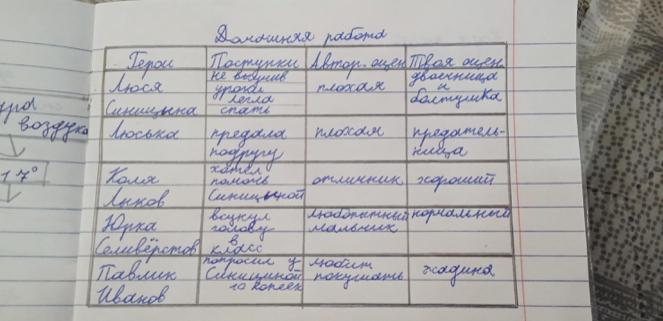 Домашняя работа
Герои Поступки Автор. оцен Твоя оцен
Люся Синицына не выучив уроки легла спать плохая двоечница и болтушка
Люська предала подругу плохая предатель-ница
Коля Лыков хотел помочь Синицыной отличник хороший
Юрка Селивёрстов всунул голову в класс любопытный мальчик нормальный
Павлик Иванов попросил у Синицыной 10 копеек любит покушать жадина
воздуха
17°